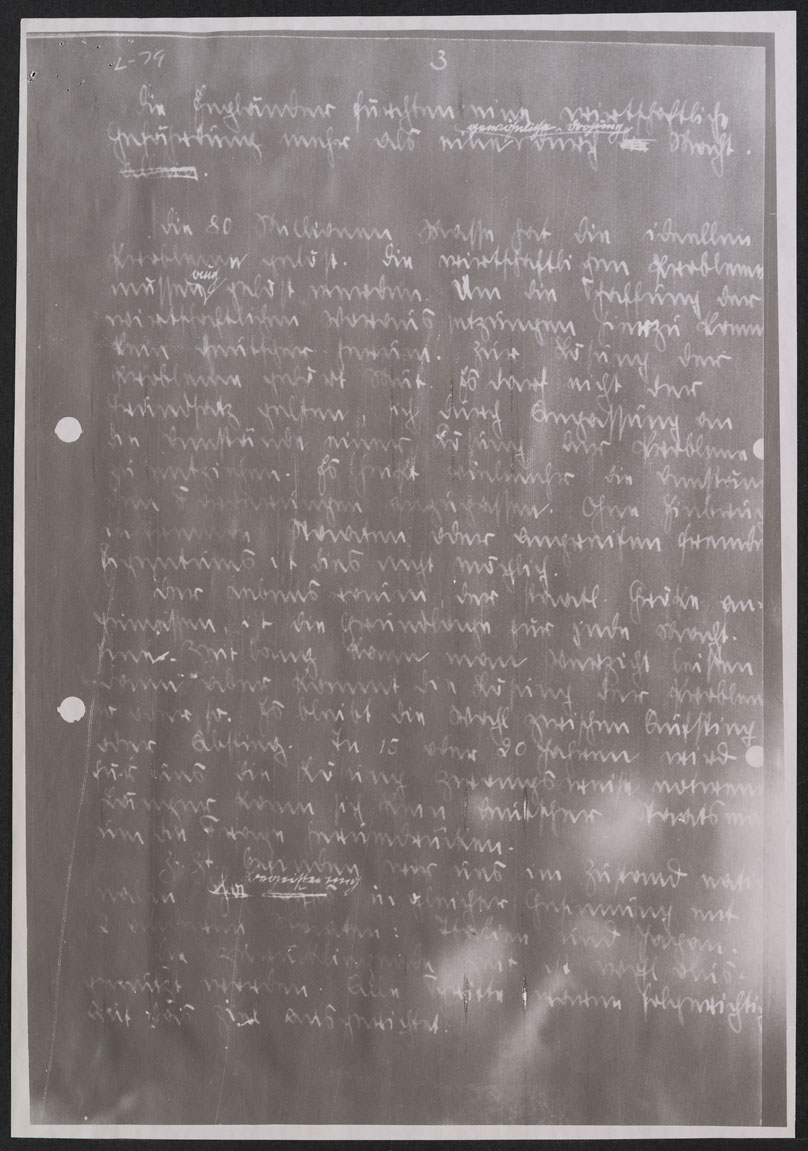 L-79
3
Die Engländer fürchten eine wirtschaftliche
gewöhnliche Drohung
Gefährdung mehr als eine durch Macht.
Die 80 Millionen Masse hat die ideellen
Probleme gelöst. Die wirtschaftlichen Probleme
auch
müssen gelöst werden. Um die Schaffung der
wirtschaftlichen Voraussetzungen hierzu kommt
kein Deutscher herum. Zur Lösung der
Probleme gehört Mut. Es darf nicht der
Grundsatz gelten, sich durch Anpassung an
die Umstände einer Lösung der Probleme
zu entziehen. Es heißt vielmehr die Umstände
den Forderungen anzupassen. Ohne Einbruch
in fremde Staaten oder Angreifen fremden
Eigentums ist dies nicht möglich.
Der Lebensraum der staatl. Größe an-
gemessen ist die Grundlage für jede Macht.
Eine Zeit lang kann man Verzicht leisten
dann aber kommt die Lösung der Probleme
so oder so. Es bleibt die Wahl zwischen Aufstieg
oder Abstieg. In 15 oder 20 Jahren wird
für uns die Lösung zwangsweise notwendig
Länger kann sich kein deutscher Staatsmann
um die Frage herumdrücken.
Z. Zt. befinden wir uns im Zustand nat.
Begeisterung
in gleicher Gesinnung mit
2 anderen Staaten: Italien und Japan.
Die zurückliegende Zeit ist wohl aus-
genutzt worden. Alle Schritte waren folgerichtig
auf das Ziel ausgerichtet.